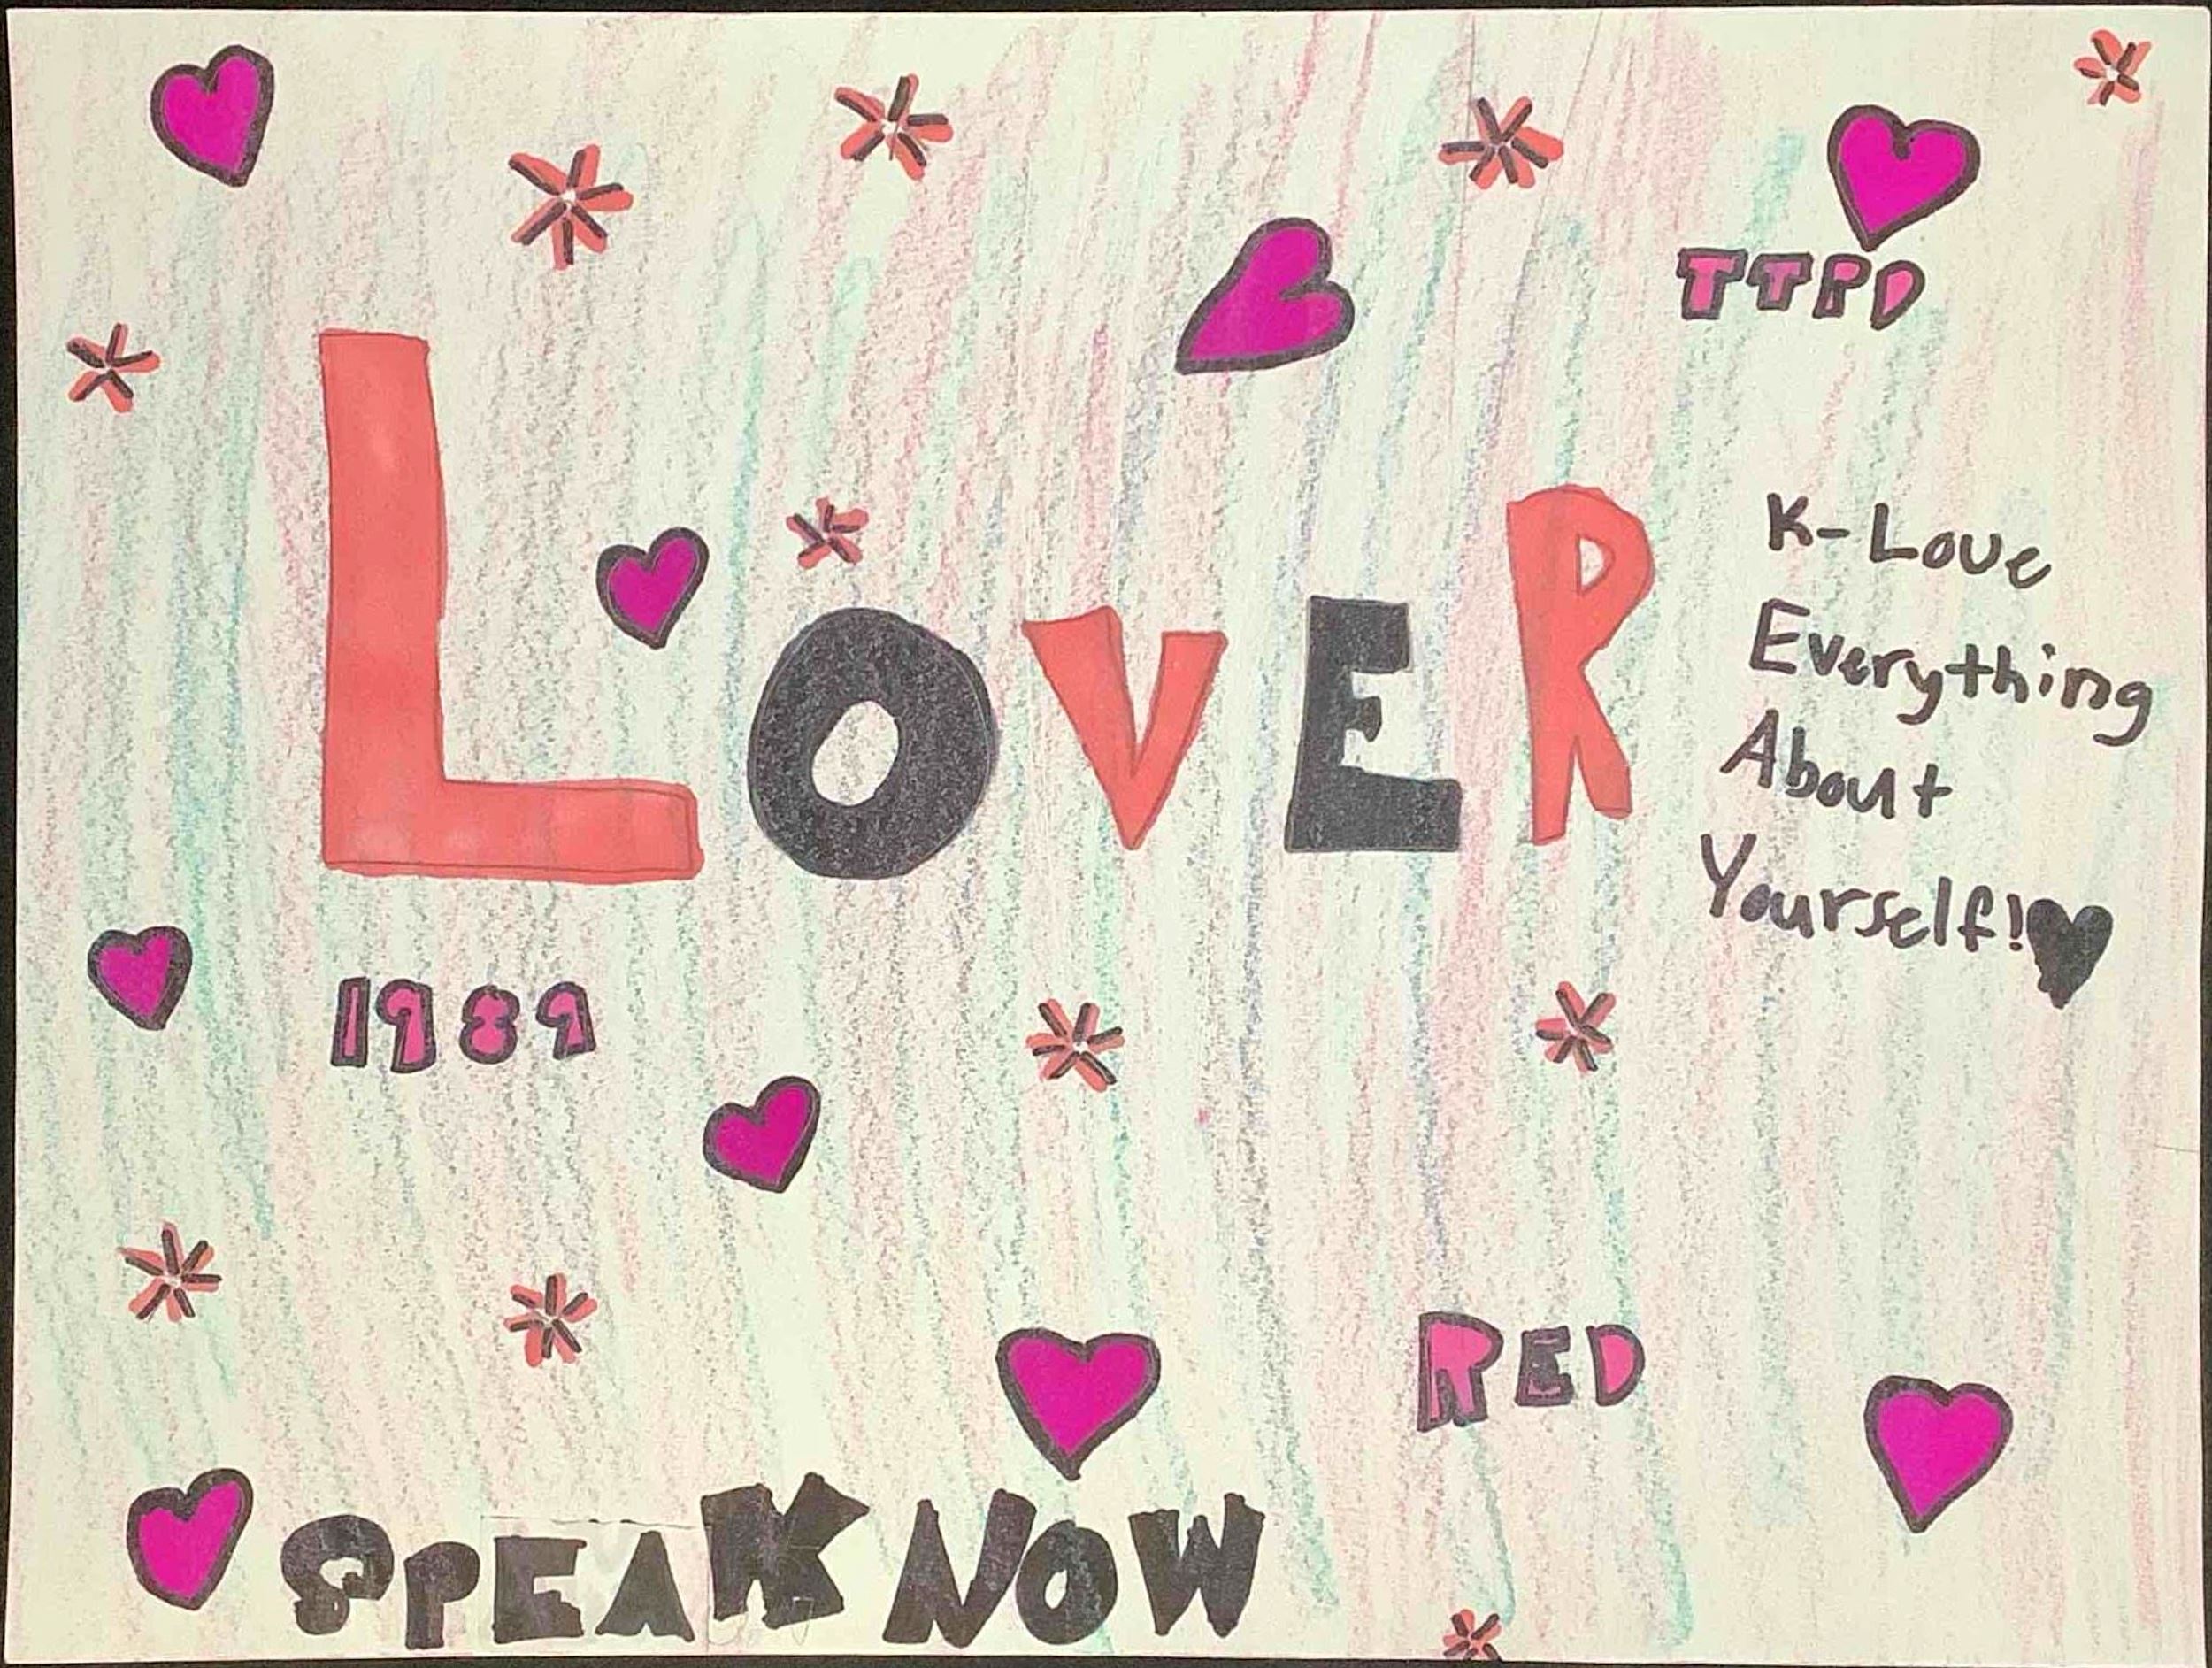 TTPD
LOVER
K-Love
Everything
About
Yourself!
1989
RED
SPEAK NOW